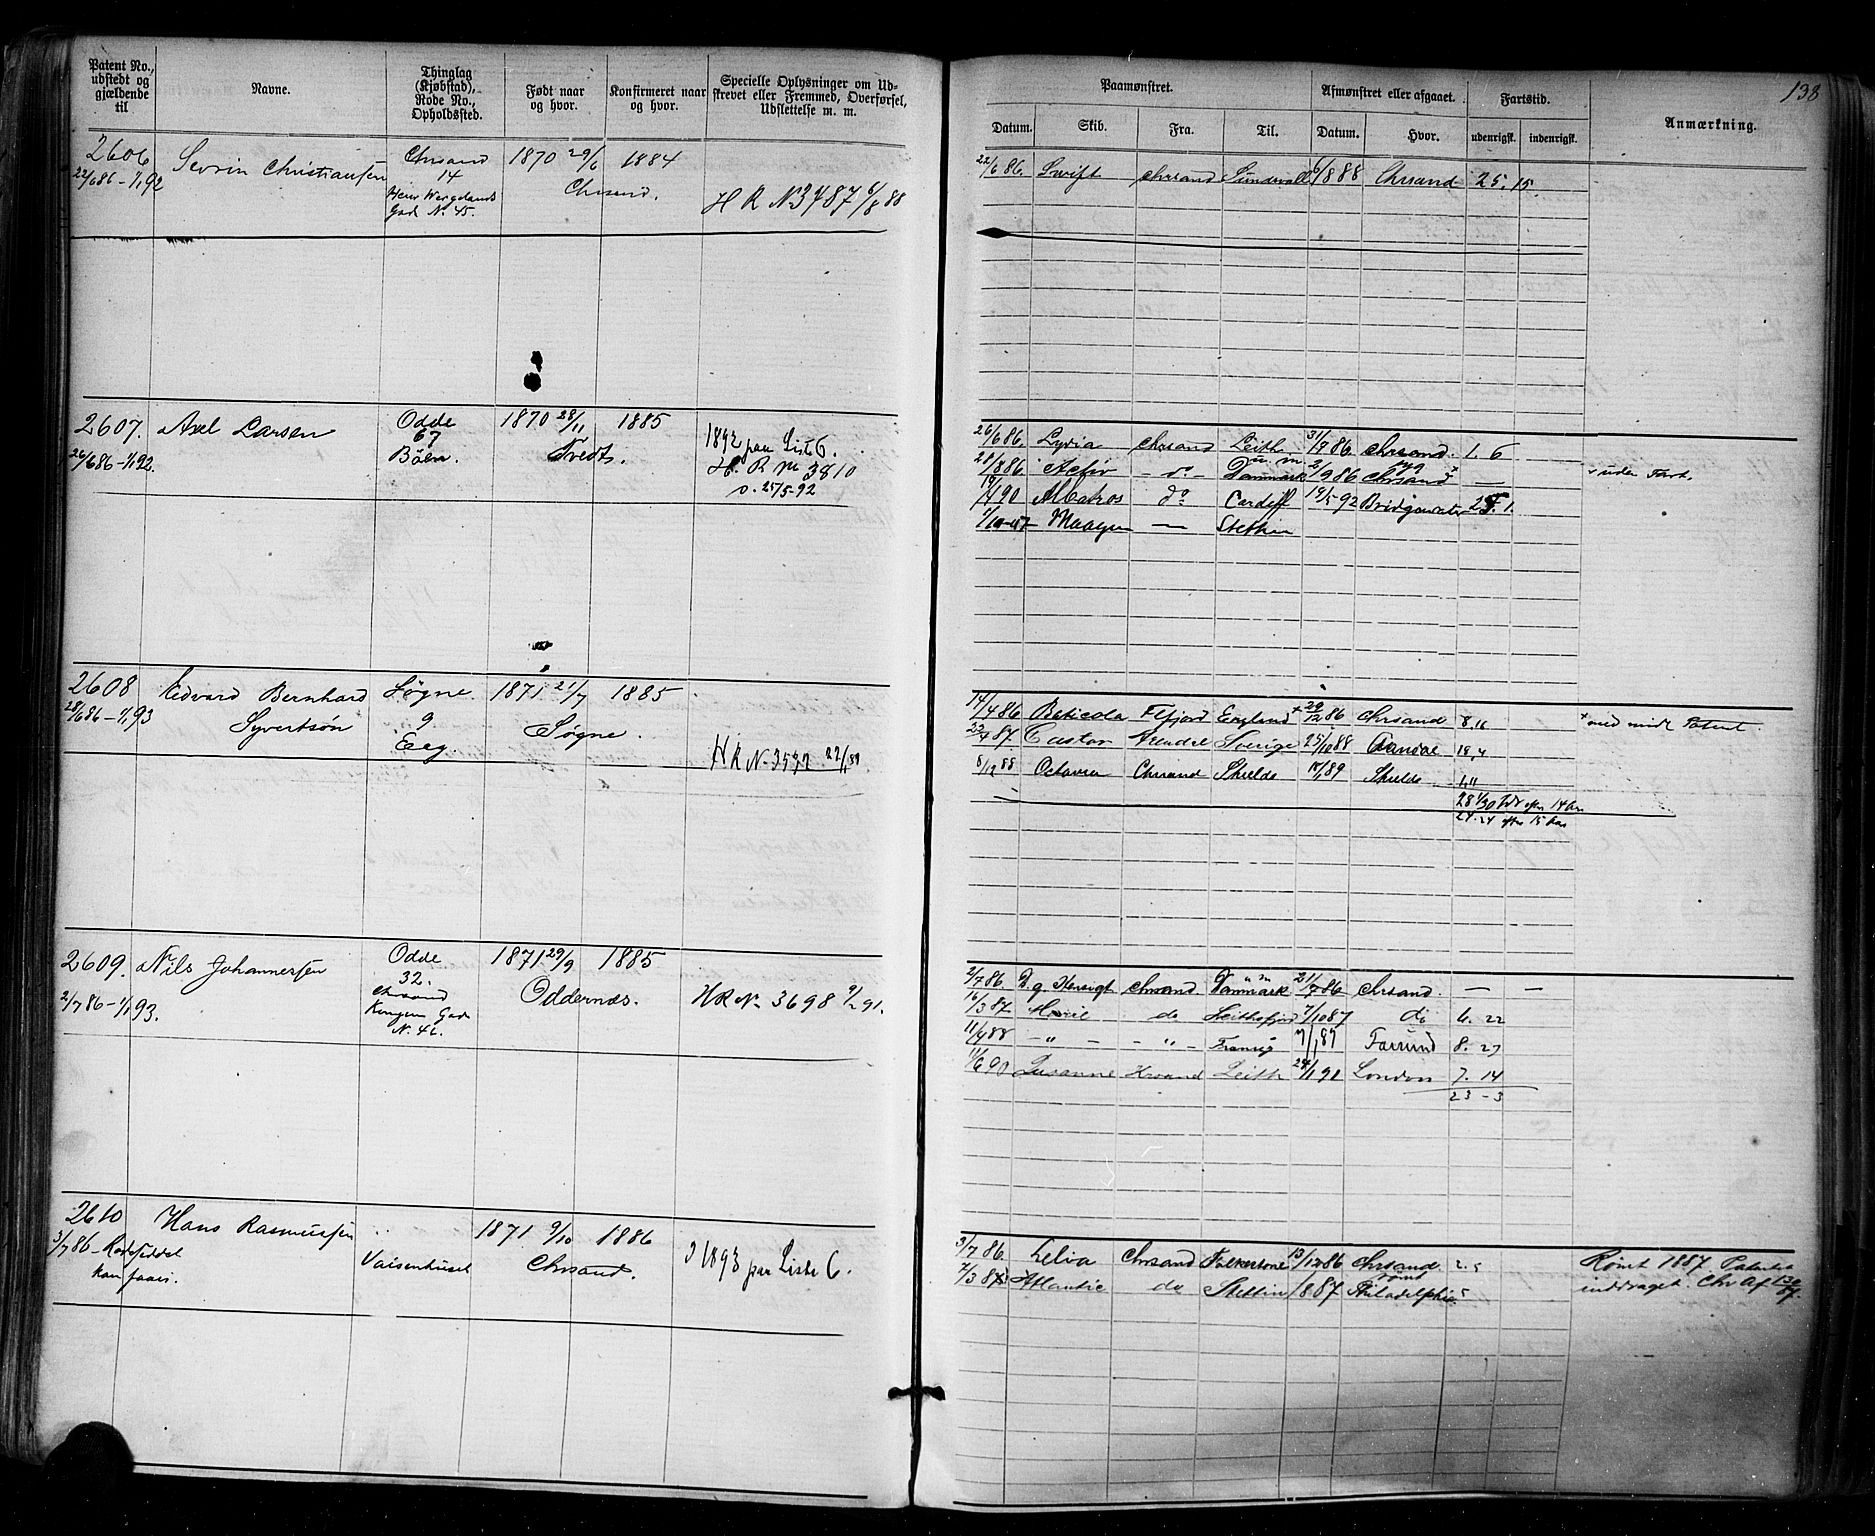 138
Patent No., udstedt og gjældende til
Navne.
Thinglag (Kjøbstad), Rode No., Opholdssted.
Født naar og hvor.
Konfirmeret naar og hvor.
Specielle Oplysninger om Udskrevet eller Fremmed, Overførsel, Udslettelse m. m.
Paamønstret.
Afmønstret eller afgaaet.
Fartstid.
Anmærkning.
Datum. Skib. Fra. Til. Datum. Hvor. udenrigsk. indenrigsk.
2606 Sevrin Christiansen Chrsand 1870 29/6 1884
22/6 86 - 1/1 92 14 Chrsand.
Henr Wergelands
Gad No. 45.
H R No 3487 6/8 88
22/6 86. Swift Chrsand Sundsvall 6/8 88 Chrsand 25. 15.
2607. Axel Larsen Odde 1870 28/11 1885
26/6 86 - 1/1 92. 67 Tvedt.
Båen.
1892 paa Liste 6.
H. R No 3810
25/5-92
26/6 86. Lydia Chrsand Leith 31/7 86 Chrsand. 1. 6
28/8 86 Activ - do - Danmark 2/9 86 Chrsand — uden Fart.
Albatros do Cardiff 19/5-92 Bridgewater
Maagen — Stettin
2608 Edvard Bernhard Søgne 1871 21/7 1885
28/6 86 - 1/1 93 Syvertsøn 9 Søgne.
Eeg.
H R No. 3532 22/1 89.
14/4 86 Beticola Flfjord England + 29/12 86 Chrsand 8,11 + med midl Patent.
Gustav Arendal Sverige 25/10 88 18,4
8/12 88 Octavia Chrsand Shields 18/1 89 Shields 1,11
28 1/30 efter 14 Aar
24.24 efter 15 Aar
2609. Nils Johannessen Odde 1871 29/9 1885
2/7 86 - 1/1 93. 32. Oddernæs.
Chrsand
Kongens Gad
No. 46.
H R No 3698 9/2 91.
2/7 86. Chrsand. Danmark 21/7 86 Chrsand. — —
16/3 87 Marie do Leithsfjord 7/10 87 do 6. 22
11/4 88 — " — — " — 7/1 89 Farsund 8. 27
11/6 90 Susanne Krsand Leith 24/1 91 London 7. 14
23 - 3
2610 Hans Rasmussen 1871 9/10 1886
3/7 86 - Rodeseddel Vaisenhuset Chrsand.
kan faaes.
1893 paa Liste 6.
3/7 86. Lelia Chrsand Folkestone 13/12 86 Chrsand 2. 5 Rømt 1887. Patentet
7/3 87 Atlantic do Stettin /8 87 rømt Philadelphia inddraget.